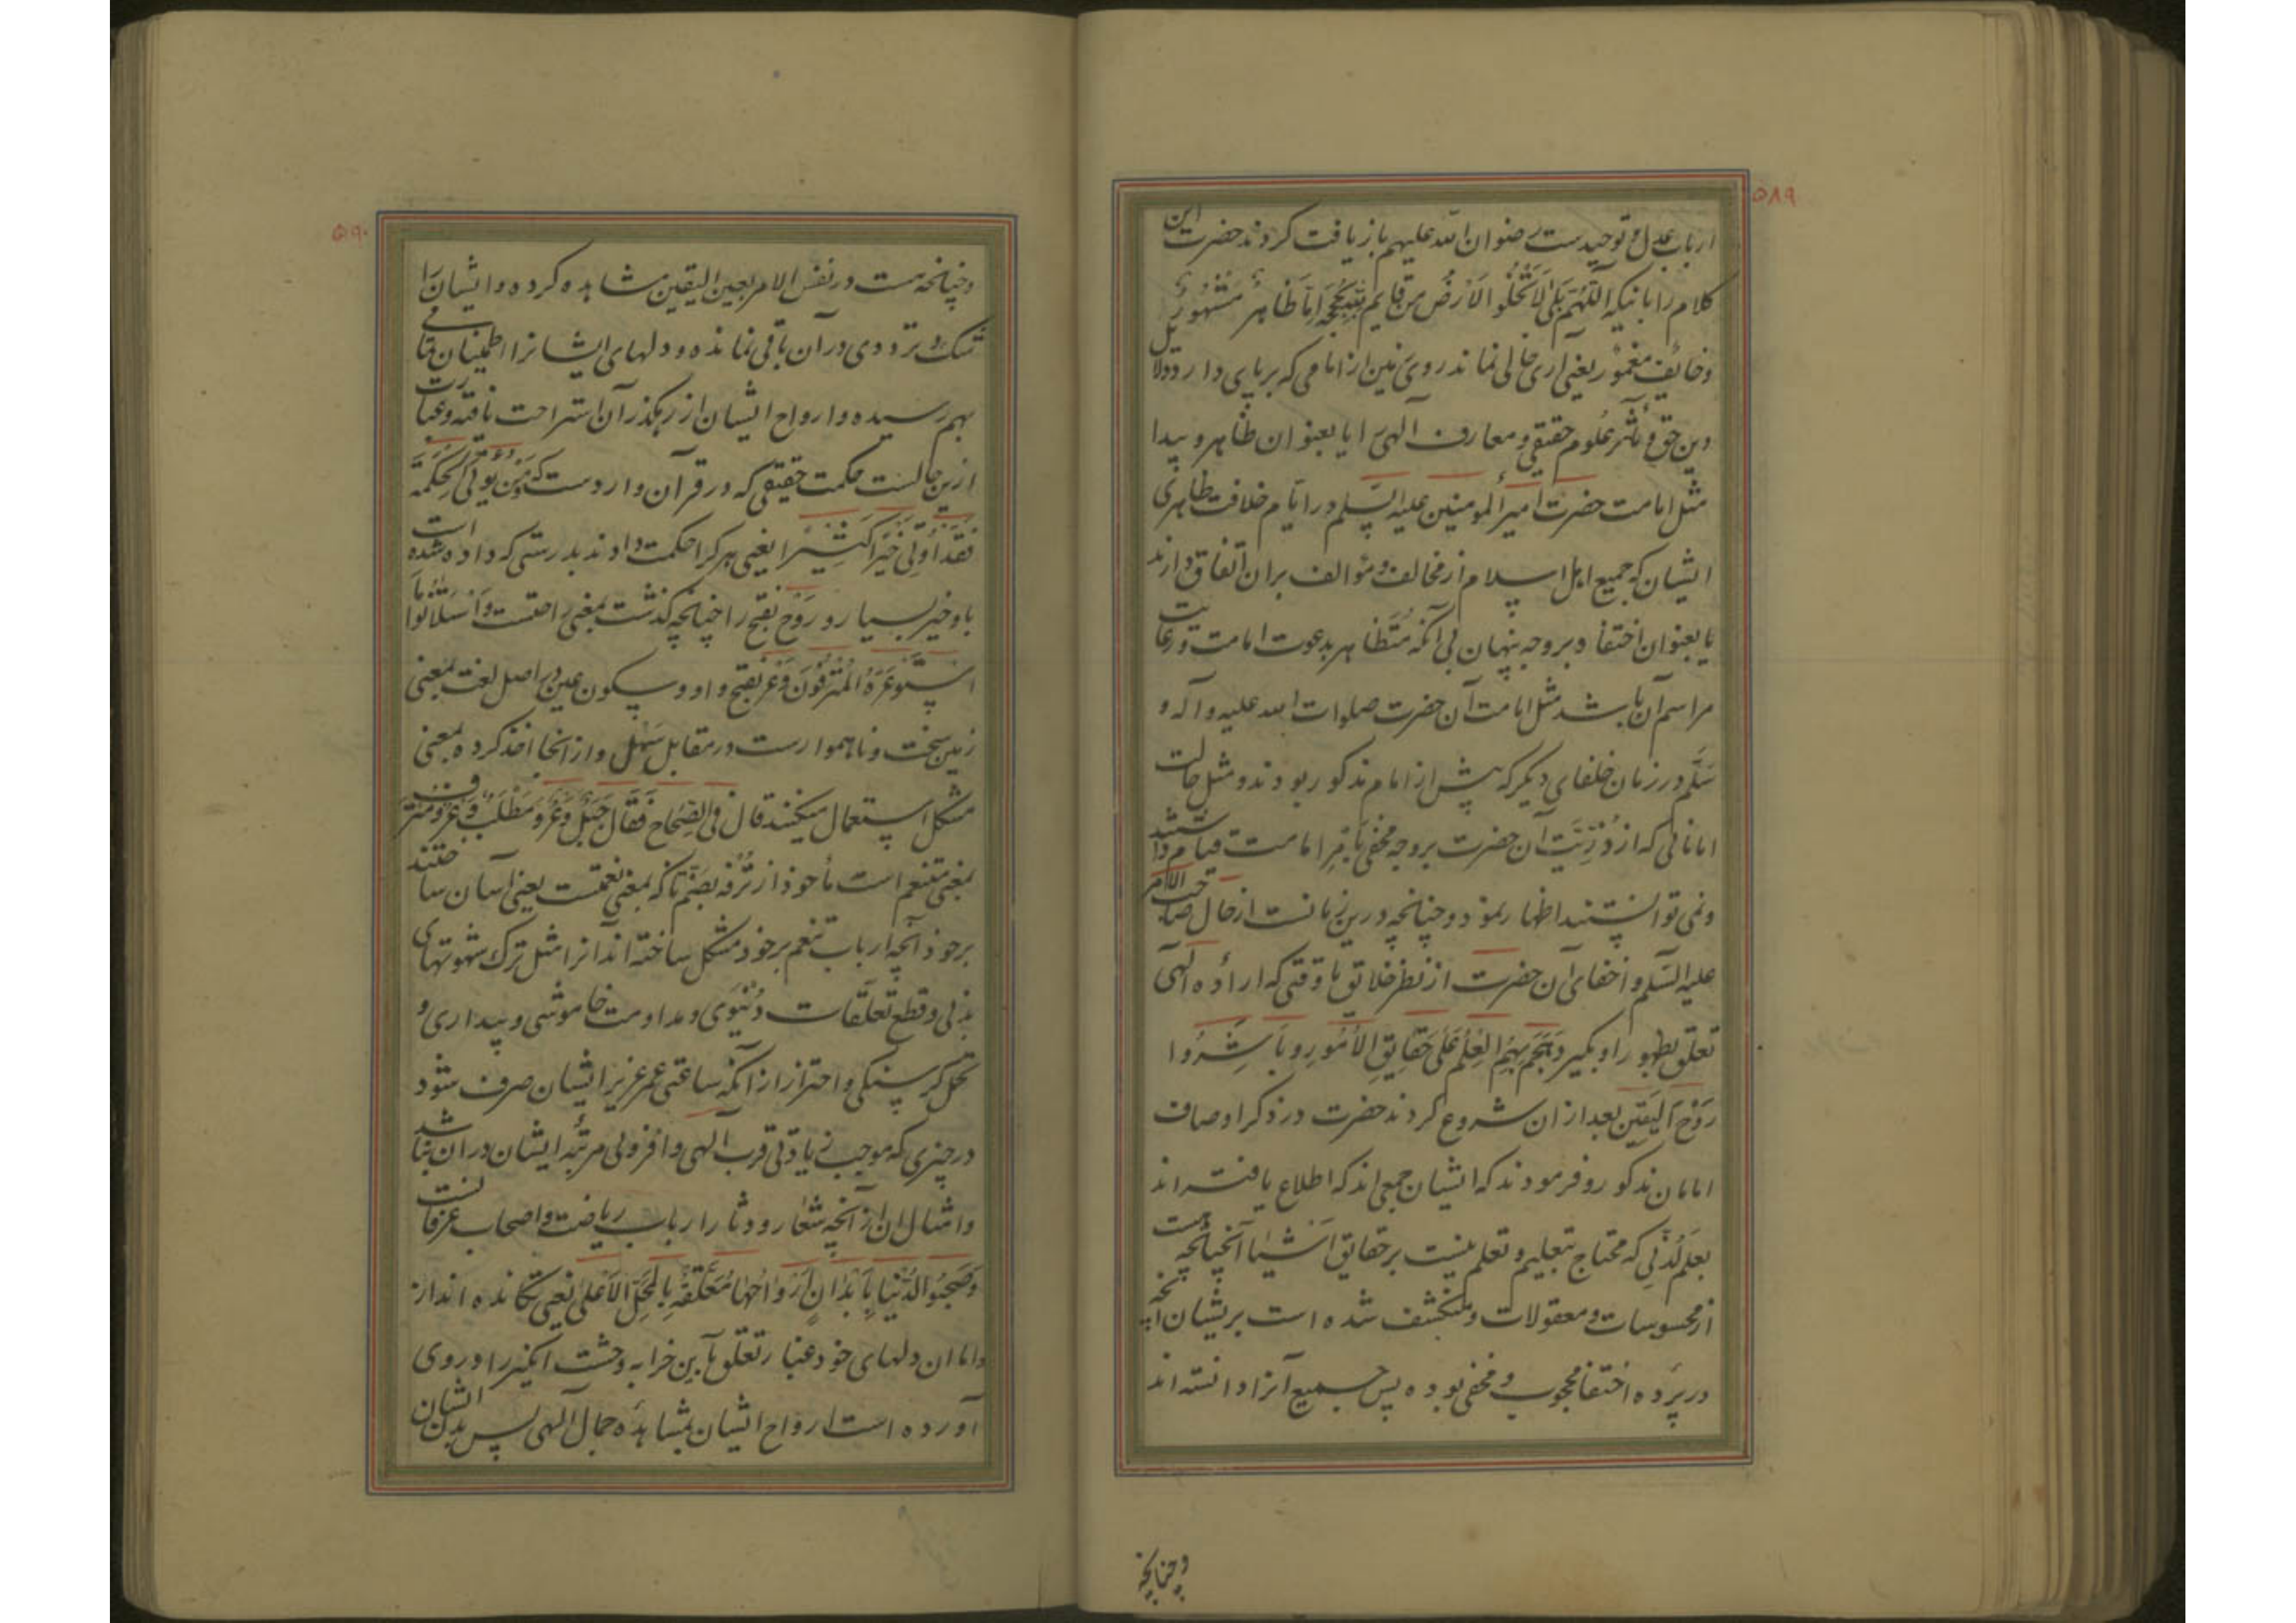 ۵۸۹
ارباب عدل و توحیدست رضوان الله علیهم بازیافت کردند حضرت این
کلام را باینکه اللّهُمَّ بَلیٰ لَا تَخْلُو الاَرْضُ مِن قایِمٍ لِلّهِ بِحُجَّةٍ اِمّا ظاهِرٌ مَشْهُورٌ
و خائِفٌ مغمُورٌ یعنی آری خالی نماند روی زمین از امامی که برپای دارد دلایل
دین حق و علوم حقیقی و معارف الهی را یا بعنوان ظاهر و پیدا
مثل امامت حضرت امیر المومنین علیه السّلم در ایّام خلافت ظاهری
ایشان که جمیع اهل اسلام از مخالف و مؤالف بران اتفاق دارند
یا بعنوان اختفا و بروجه پنهان بی آنکه مُتَظاهر بدعوت امامت و رعایت
مراسم آن باشد مثل امامت آن حضرت صلوات الله علیه و آله و
سَلَّم در زمان خلفای دیکر که پیش از امام مذکور بودند و مثل حالت
امامانی که از ذُرِّیَّت آن حضرت بروجه مخفی بامر امامت قیام داشتند
و نمی توانستند اظهار نمود و چنانچه درین زمانست از حال صاحب الامر
علیه السّلم و اخفای آن حضرت از نظر خلائق تا وقتی که اراده الهی
تعلّق بظهور او بگیرد هَجَمَ بِهِمُ العِلْمُ عَلیٰ حَقایِقِ الاُمُورِ و باشَرُوا
رَوْحَ الیَقینِ بعد ازان شروع کردند حضرت در ذکر اوصاف
امامان مذکور و فرمودند که ایشان جمعی اند که اطلاع یافته اند
بعلم لَدُنّی که محتاج بتعلیم و تعلم نیست بر حقایق اشیا آنچنانچه هست
از محسوسات و معقولات و منکشف شده است بریشان آنچه
در پرده اختفا محجوب و مخفی بوده پس جمیع آنرا دانسته اند
و چنانچه
۵۹۰
و چنانچه هست در نفس الامر بعین الیقین مشاهده کرده و ایشان را
شک و ترددی در آن باقی نمانده و دلهای ایشانرا اطمینان تمامی
بهم رسیده و ارواح ایشان از رهکذر آن استراحت یافته و عبارت
ازین حالست حکمت حقیقی که در قرآن واردست که وَمَنْ یُؤتَی الحِکْمَةَ
فَقَدْ اُوتِیَ خَیْراً کَثِیْراً یعنی هر کرا حکمت دادند بدرستی که داده شده است
باو خیر بسیار و رَوْح بفتح را چنانچه کذشت بمعنی راحتست وَاسْتَلانُوا مَا
اسْتَوعَرَهُ المُتْرَفُونَ وَعْر بفتح واو و سکون عین در اصل لغت بمعنی
زمین سخت و ناهموارست در مقابل سَهْل و از انجا اخذ کرده بمعنی
مشکل استعمال میکنند قال فی الصِّحاح فَقَالَ جَبَلٌ وَعْرٌ وَ مَطْلَبٌ وَعْرٌ و مترف
بمعنی متنعم است مأخوذ از تُرْفه بضمّ تا که بمعنی نعمتست یعنی آسان ساختند
بر خود آنچه ارباب تنعم بر خود مشکل ساخته اند آنرا مثل ترک شهوتهای
بدنی و قطع تعلّقات دُنْیَوی و مداومت خاموشی و بیداری و
تحمل کرسنکی و احتراز از آنکه ساعتی عمر عزیز ایشان صرف شود
در چیزی که موجب زیادتی قرب الهی و افزونی مرتبه ایشان دران نباشد
و امثال ان از آنچه شعار و دثار ارباب ریاضت و اصحاب عرفانست
وَصَحِبُوا الدُّنیا بِاَبْدانٍ اَرْواحُها مُعَلَّقَةٌ بِالمَحَلِّ الاَعْلیٰ یعنی تکانده اند از
دامان دلهای خود غبار تعلّق باین خرابه وحشت انکیز را و روی
آورده است ارواح ایشان بمشاهده جمال الهی پس بدن ایشان